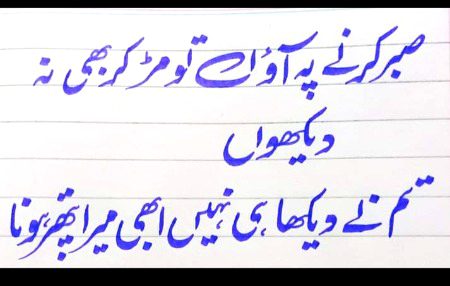 صبر کرنے پہ آؤں تو مڑ کر بھی نہ
دیکھواں
تم نے دیکھا ہی نہیں ابھی میرا پتھر ہونا